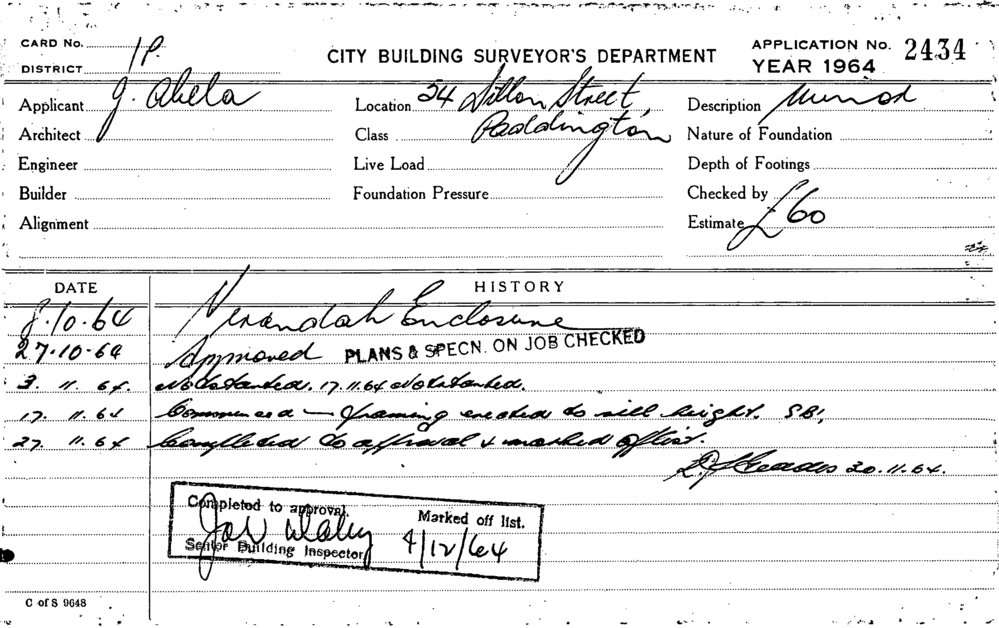 CARD No. 1P.
CITY BUILDING SURVEYOR'S DEPARTMENT
APPLICATION No. 2434
DISTRICT
YEAR 1964
Applicant J. Abela
Location 24 Dillon Street,
Description
Architect
Class Paddington
Nature of Foundation
Engineer
Live Load
Depth of Footings
Builder
Foundation Pressure
Checked by
Alignment
Estimate £60
DATE
HISTORY
8.10.64 Verandah Enclosure
27.10.64 Approved PLANS & SPECN. ON JOB CHECKED
3. 11. 64. Not started. 17.11.64 Not started.
17. 11. 64 Commenced — framing erected to sill height. SBI,
27. 11. 64 Completed to approval & marked off list.
30.11.64.
Completed to approval.
Marked off list.
4/12/64
Senior Building Inspector
C of S 9648